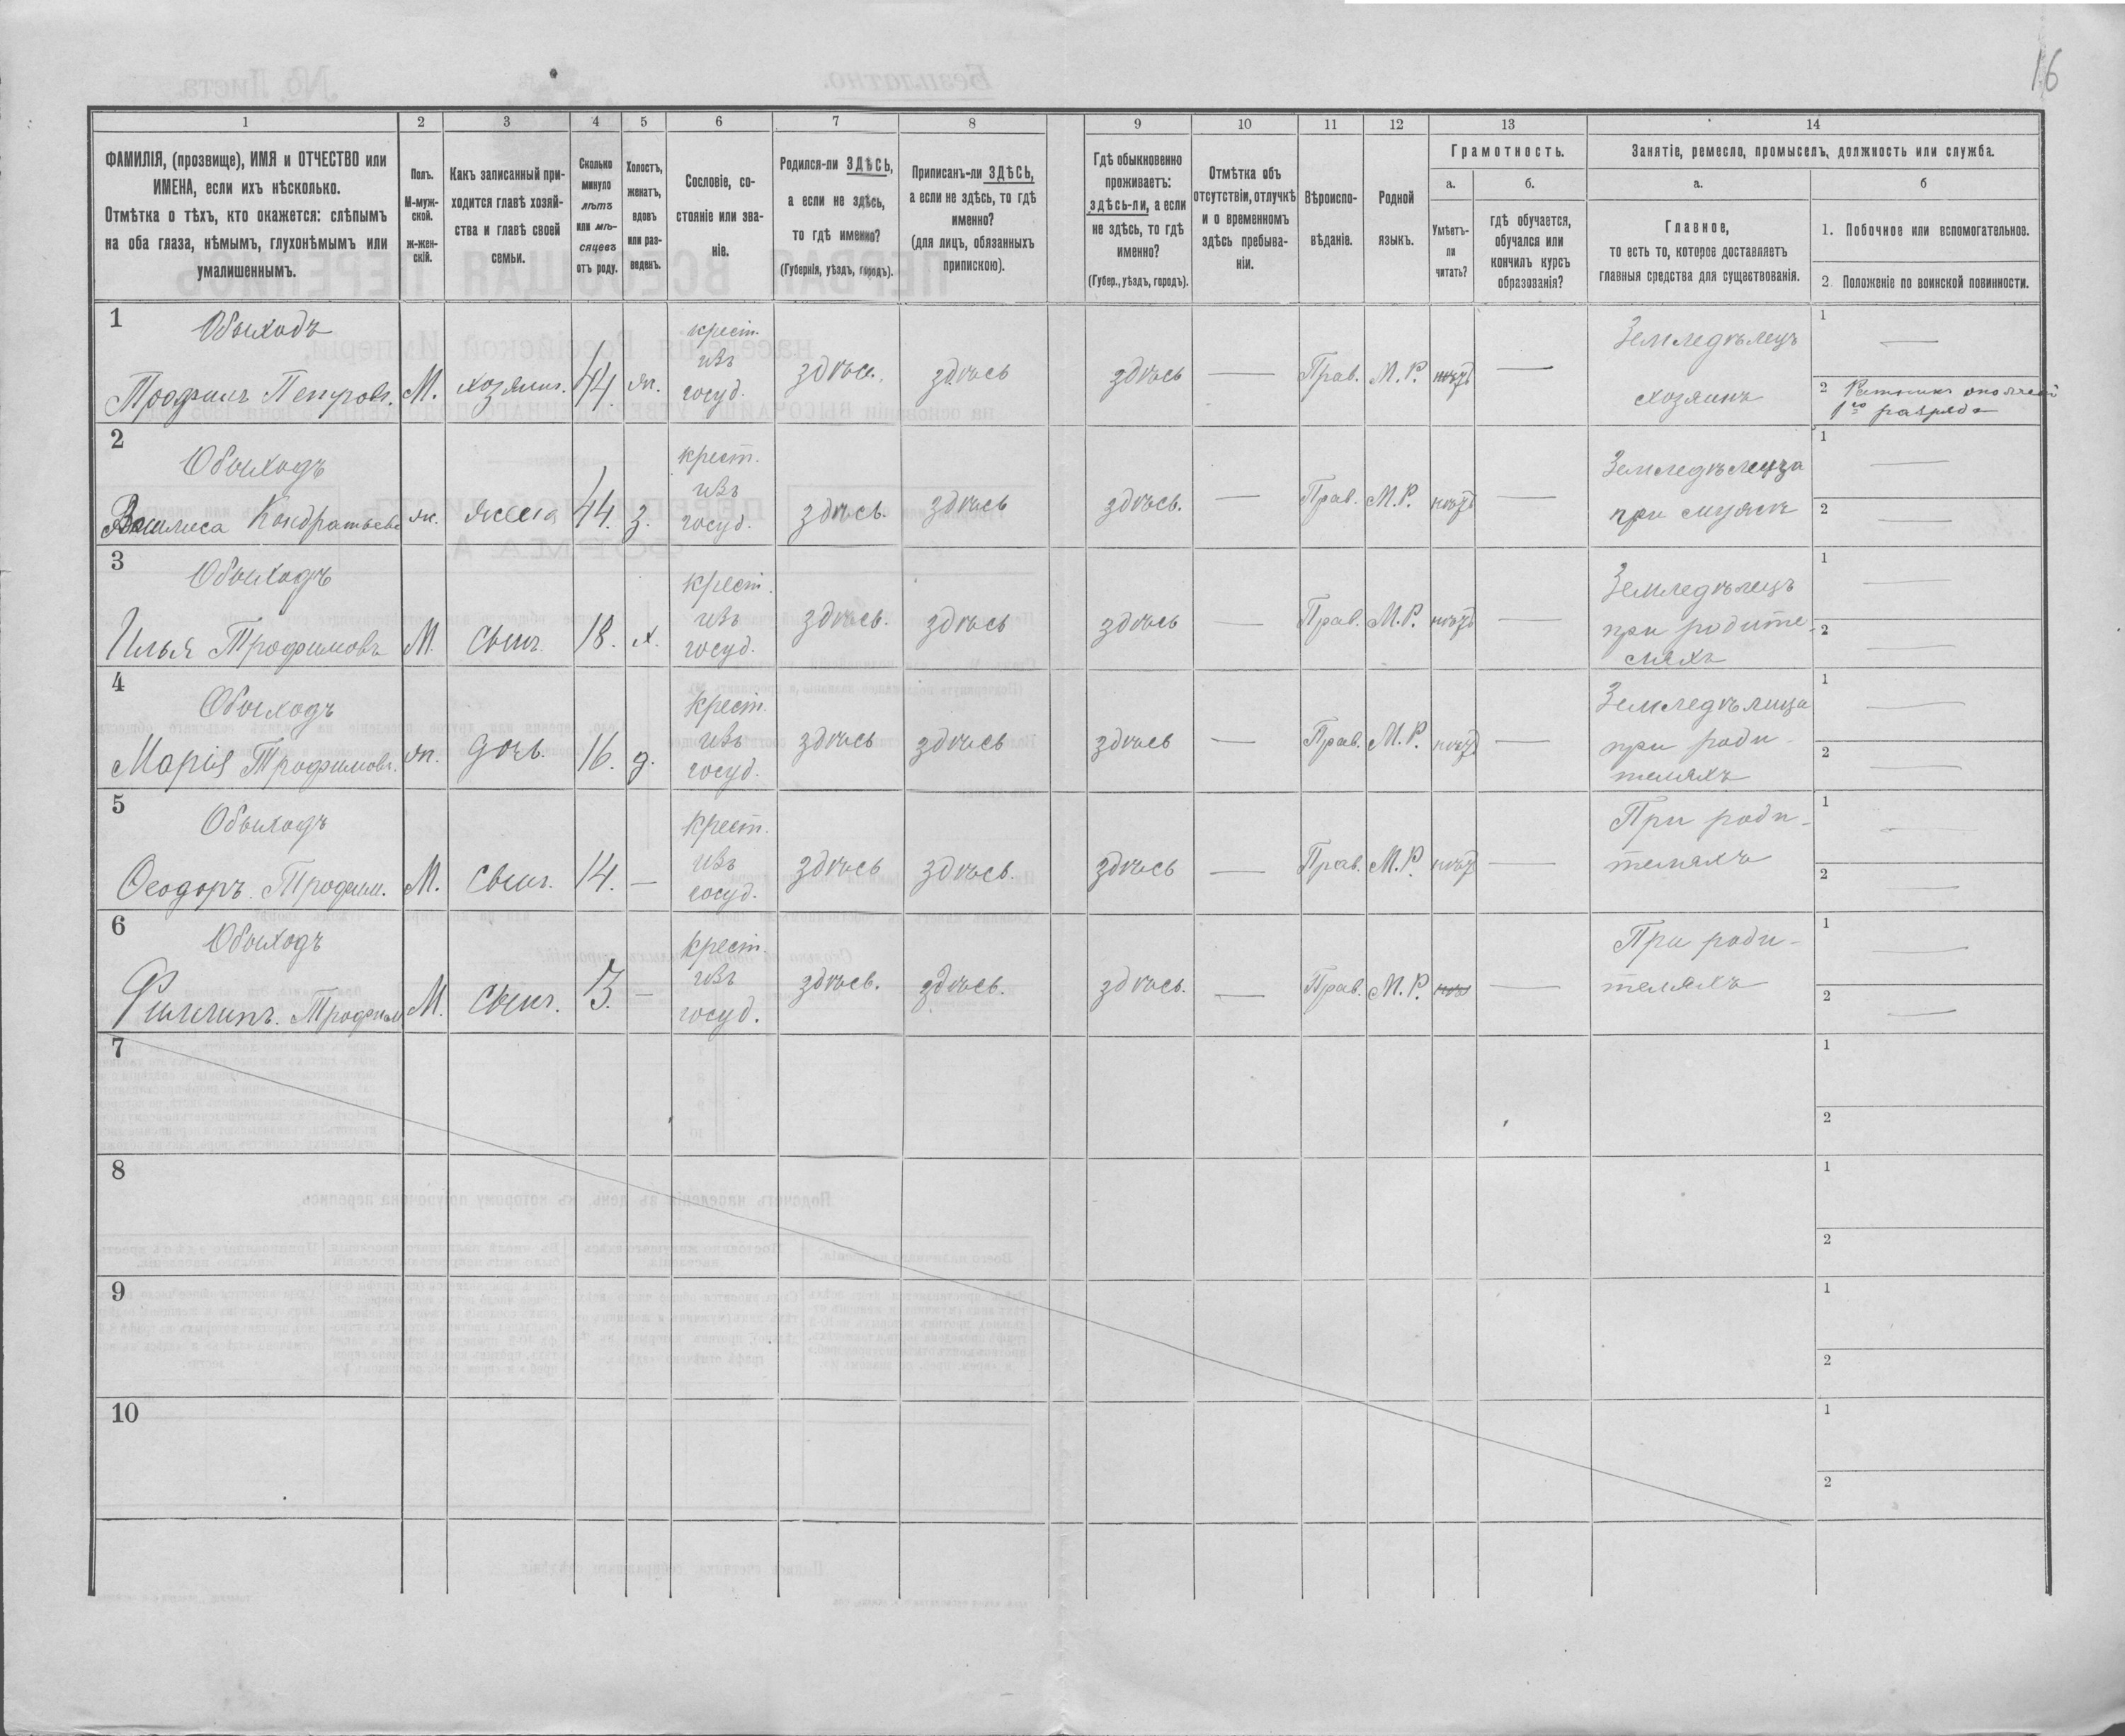 16
1 2 3 4 5 6 7 8 9 10 11 12 13 14
ФАМИЛІЯ, (прозвище), ИМЯ и ОТЧЕСТВО или
ИМЕНА, если ихъ нѣсколько.
Отмѣтка о тѣхъ, кто окажется: слѣпымъ
на оба глаза, нѣмымъ, глухонѣмымъ или
умалишеннымъ.
Полъ.
М-муж-
ской.
ж-жен-
скій.
Какъ записанный при-
ходится главѣ хозяй-
ства и главѣ своей
семьи.
Сколько
минуло
лѣтъ
или мѣ-
сяцевъ
отъ роду.
Холостъ,
женатъ,
вдовъ
или раз-
веденъ.
Сословіе, со-
стояніе или зва-
ніе.
Родился-ли ЗДѢСЬ,
а если не здѣсь,
то гдѣ именно?
(Губернія, уѣздъ, городъ).
Приписанъ-ли ЗДѢСЬ,
а если не здѣсь, то гдѣ
именно?
(для лицъ, обязанныхъ
припискою).
Гдѣ обыкновенно
проживаетъ:
здѣсь-ли, а если
не здѣсь, то гдѣ
именно?
(Губер., уѣздъ, городъ).
Отмѣтка объ
отсутствіи, отлучкѣ
и о временномъ
здѣсь пребыва-
ніи.
Вѣроиспо-
вѣданіе.
Родной
языкъ.
Грамотность.
а.
Умѣетъ-
ли
читать?
б.
гдѣ обучается,
обучался или
кончилъ курсъ
образованія?
Занятіе, ремесло, промыселъ, должность или служба.
а.
Главное,
то есть то, которое доставляетъ
главныя средства для существованія.
б
1. Побочное или вспомогательное.
2. Положеніе по воинской повинности.
1
Обыходъ
Трофимъ Петровъ. М. хозяинъ. 44. ж. крест. изъ госуд. здѣсь. здѣсь здѣсь — Прав. М.Р. нѣтъ —
Земледѣлецъ
хозяинъ
1 —
2 Ратникъ ополченія
1го разряда
2
Обыходъ
Василиса Кондратьева ж. жена 44. з. крест. изъ госуд. здѣсь. здѣсь здѣсь. — Прав. М.Р. нѣтъ —
Земледѣлица
при мужѣ
1 —
2 —
3
Обыходъ
Илья Трофимовъ М. сынъ. 18. х. крест. изъ госуд. здѣсь. здѣсь здѣсь — Прав. М.Р. нѣтъ —
Земледѣлецъ
при родите-
ляхъ
1 —
2 —
4
Обыходъ
Марія Трофимов. ж. дочь. 16. д. крест. изъ госуд. здѣсь здѣсь здѣсь — Прав. М.Р. нѣтъ —
Земледѣлица
при роди-
теляхъ
1 —
2 —
5
Обыходъ
Ѳеодоръ. Трофим. М. сынъ. 14. — крест. изъ госуд. здѣсь здѣсь. здѣсь — Прав. М.Р. нѣтъ —
При роди-
теляхъ
1 —
2 —
6
Обыходъ
Филипъ. Трофим М. сынъ. 3. — крест. изъ госуд. здѣсь. здѣсь. здѣсь. — Прав. М.Р. —
При роди-
теляхъ
1 —
2 —
7
1
2
8
1
2
9
1
2
10
1
2